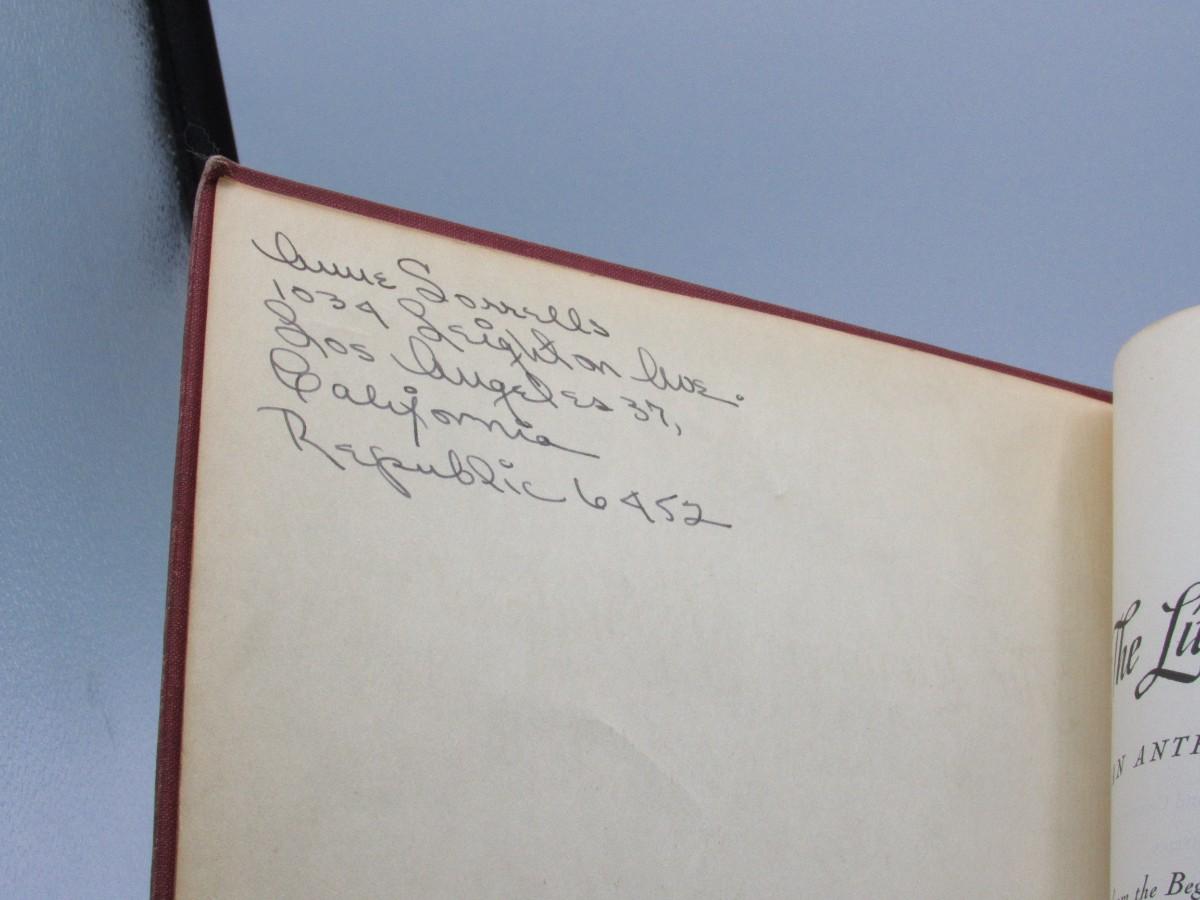 Anne Sorrells
1034 Leighton Ave.
Los Angeles 37,
California
Republic 6452
The
AN
the